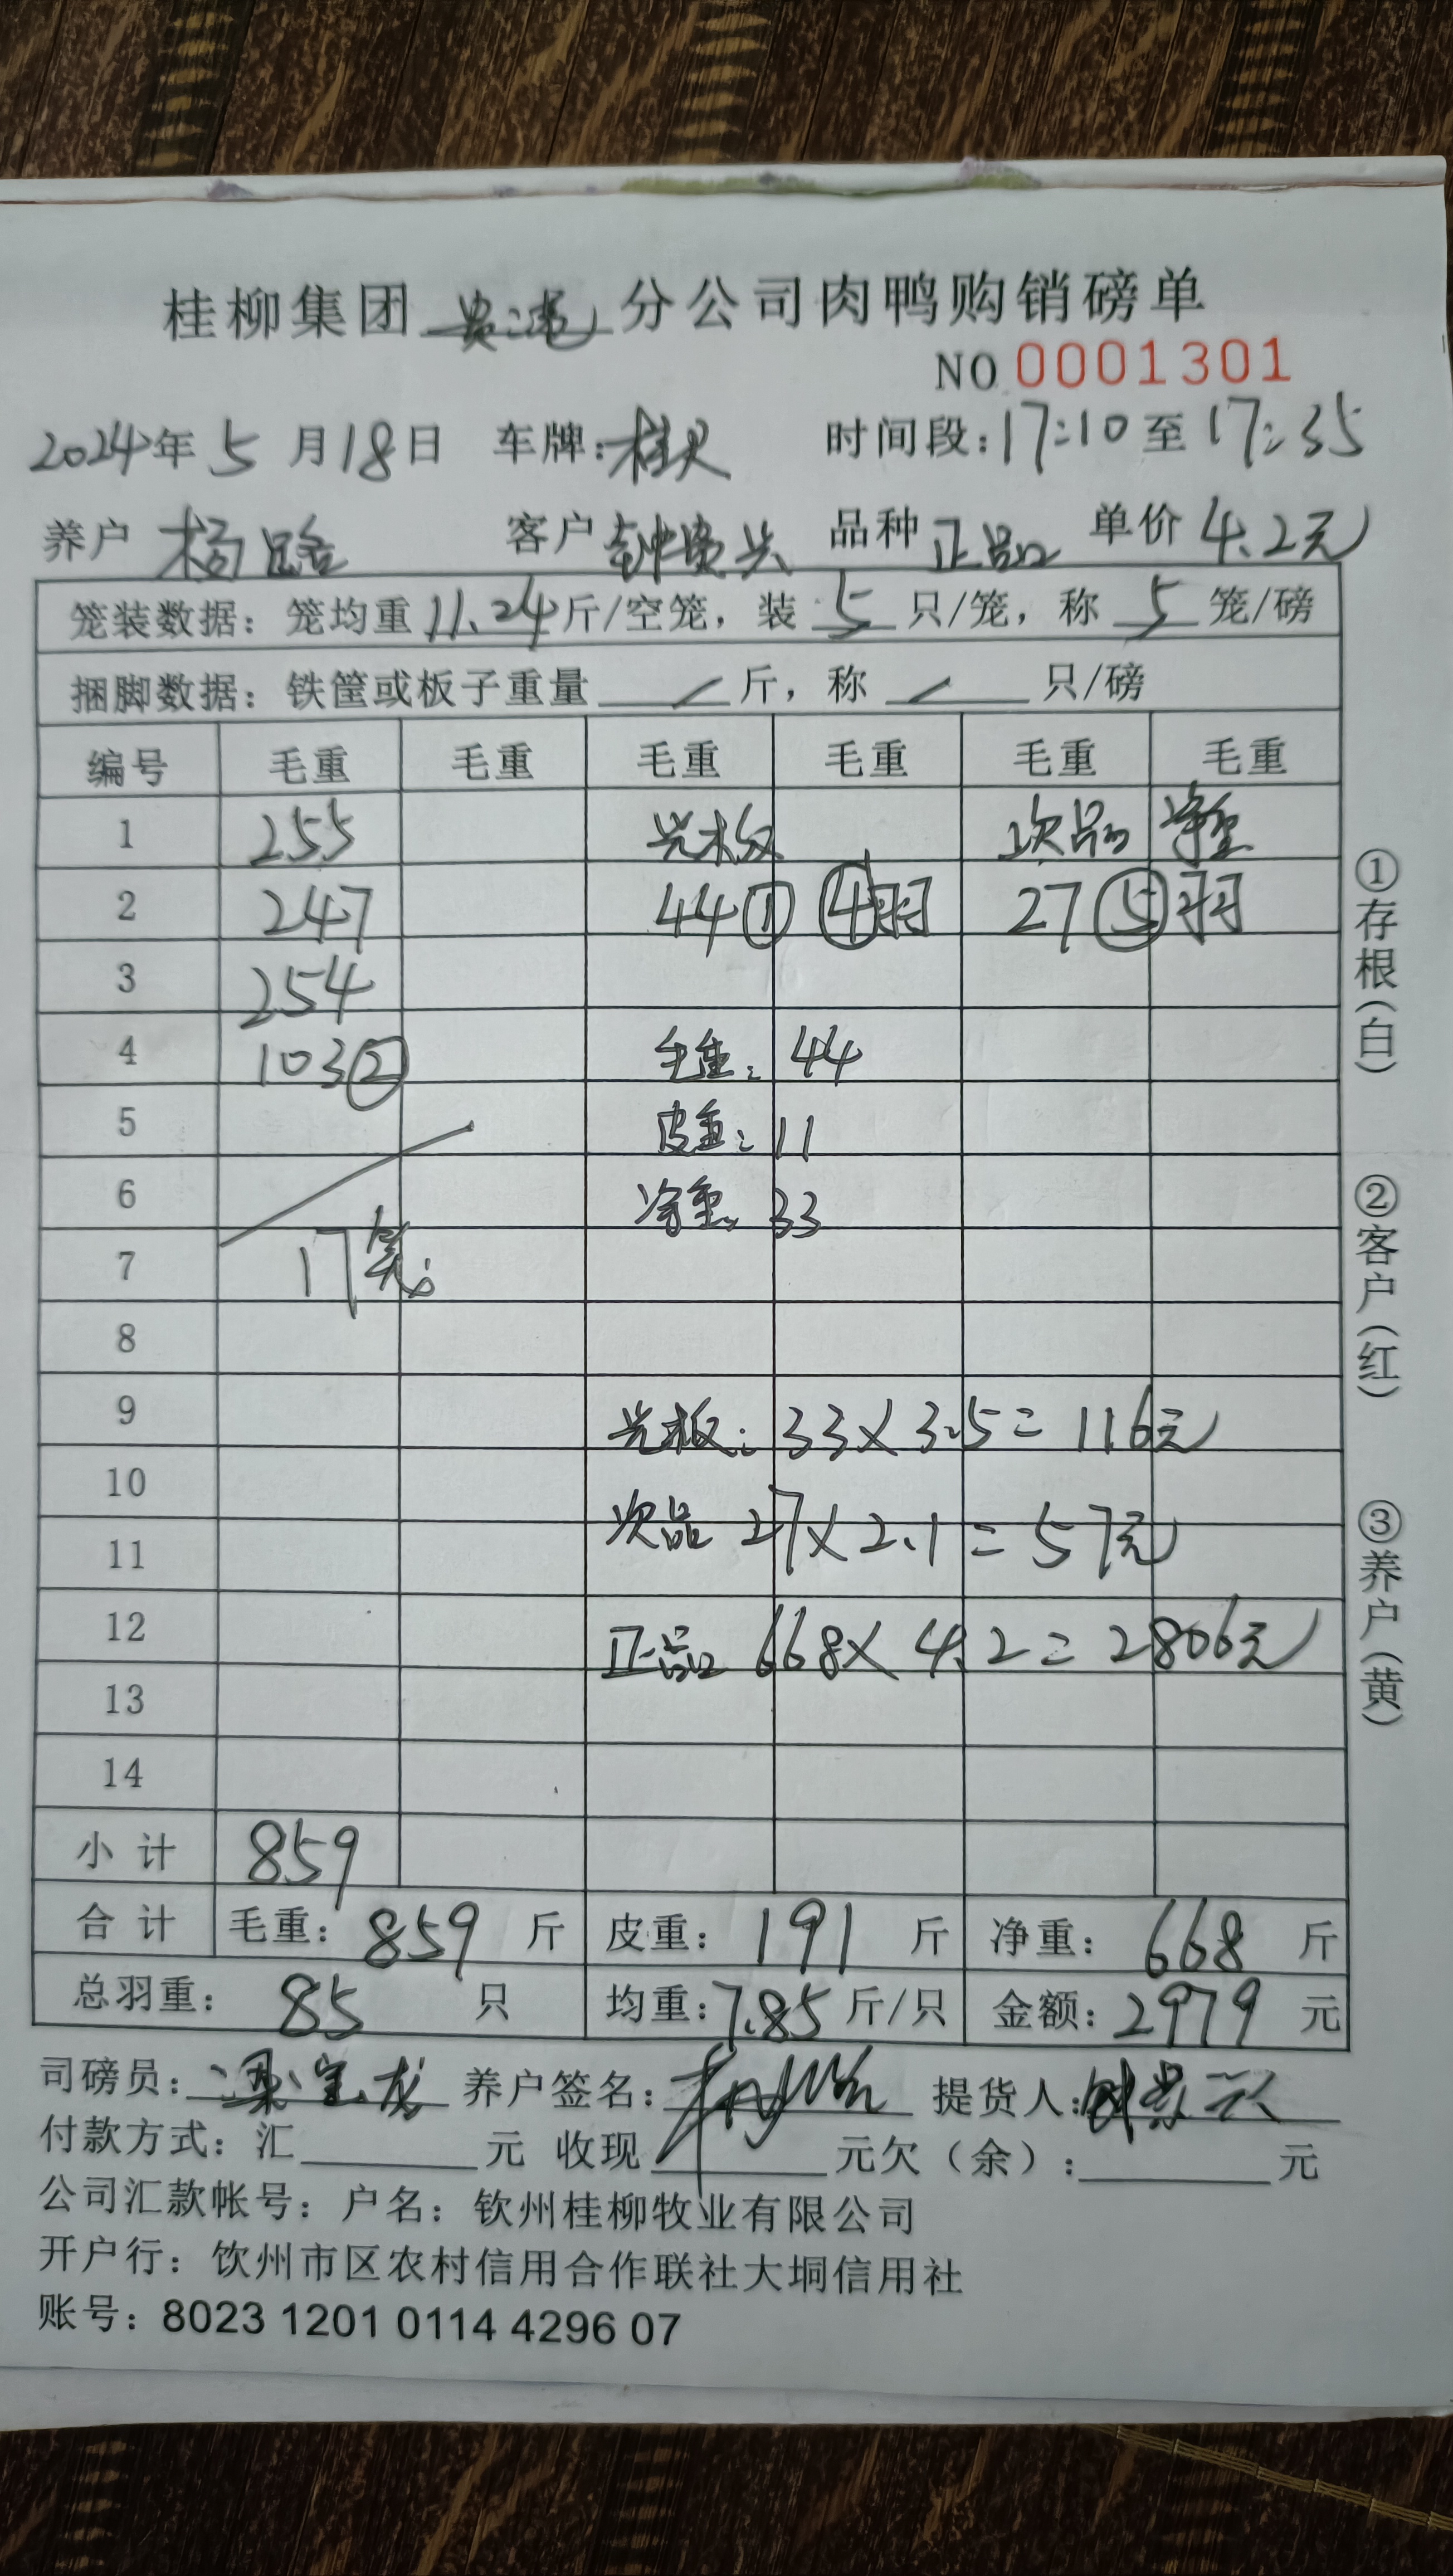 桂柳集团贵港分公司肉鸭购销磅单
NO 0001301
2024年5月18日 车牌:桂 时间段:17:10至17:35
养户 杨路 客户 钟贵兴 品种 正品 单价 4.2元
笼装数据：笼均重11.24斤/空笼，装5只/笼，称5笼/磅
捆脚数据：铁筐或板子重量/斤，称/只/磅
编号 毛重 毛重 毛重 毛重 毛重 毛重
1 255 光板 次品 净重
2 247 44① ④羽 27⑤羽
3 254
4 103② 毛重: 44
5 皮重: 11
6 净重: 33
7 17笼
8
9 光板: 33×3.5=116元
10
11 次品 27×2.1=57元
12 正品 668×4.2=2806元
13
14
小计 859
合计 毛重：859斤 皮重：191斤 净重：668斤
总羽重：85只 均重：7.85斤/只 金额：2979元
司磅员： 养户签名： 提货人：
付款方式：汇 元 收现 元欠（余）： 元
公司汇款帐号：户名：钦州桂柳牧业有限公司
开户行：饮州市区农村信用合作联社大垌信用社
账号：8023 1201 0114 4296 07
①存根（白）
②客户（红）
③养户（黄）